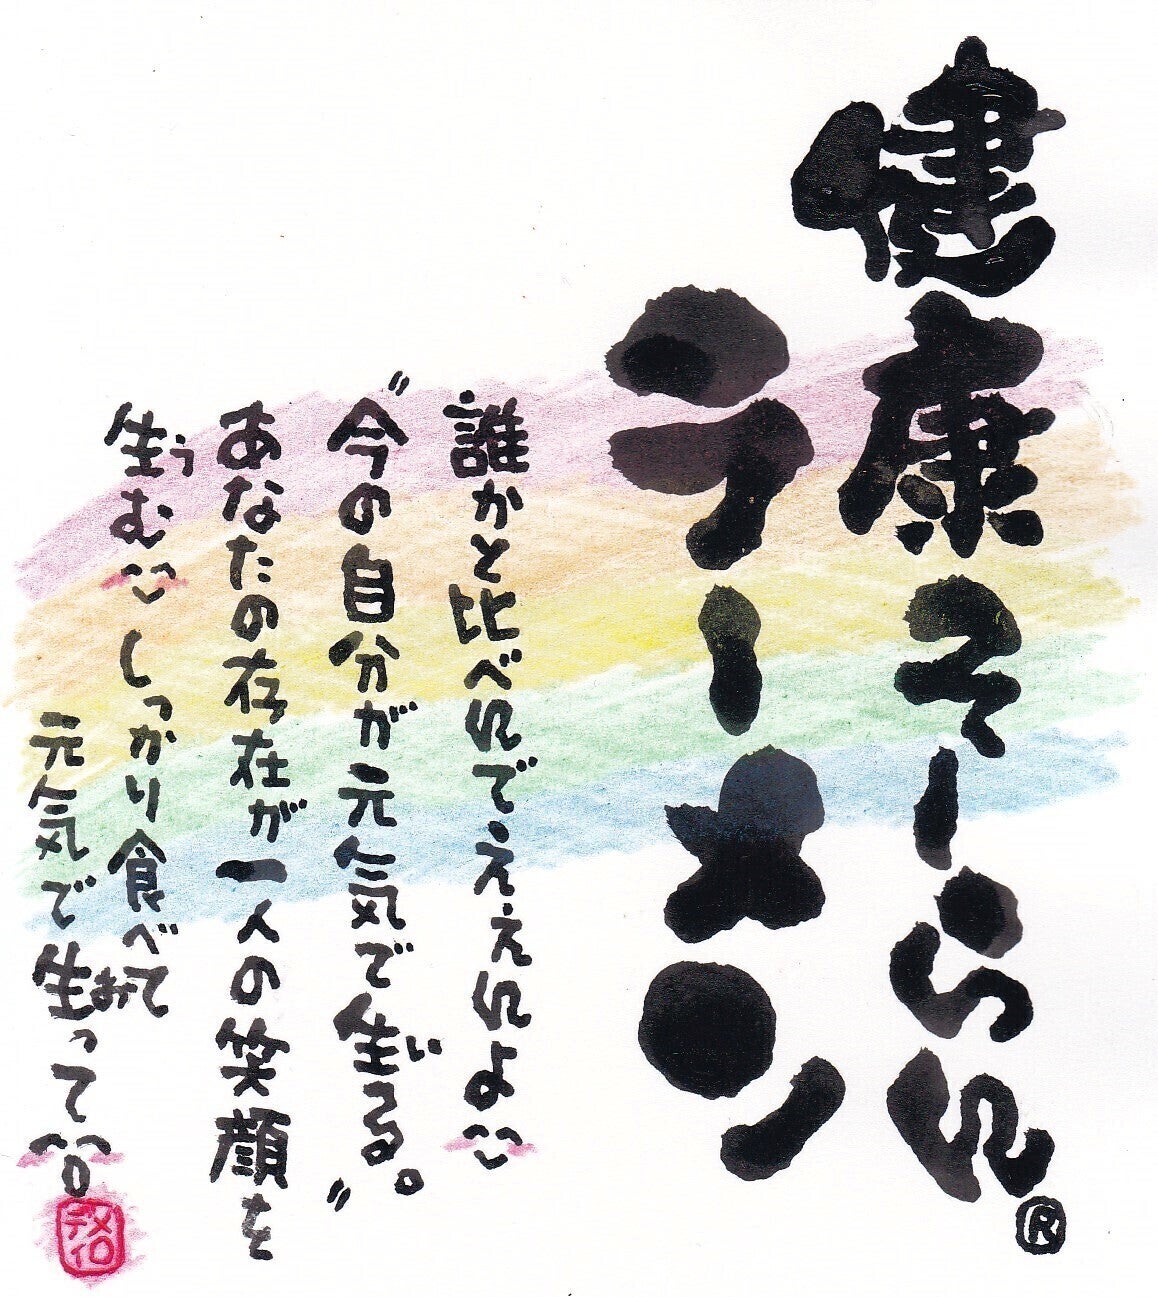 健康そーらん®
ラーメン
誰かと比べんでええんよ
“今の自分が元気で生る。”
い
あなたの存在が一人の笑顔を
生む しっかり食べて
う
元気で生って
お
デメ
イロ